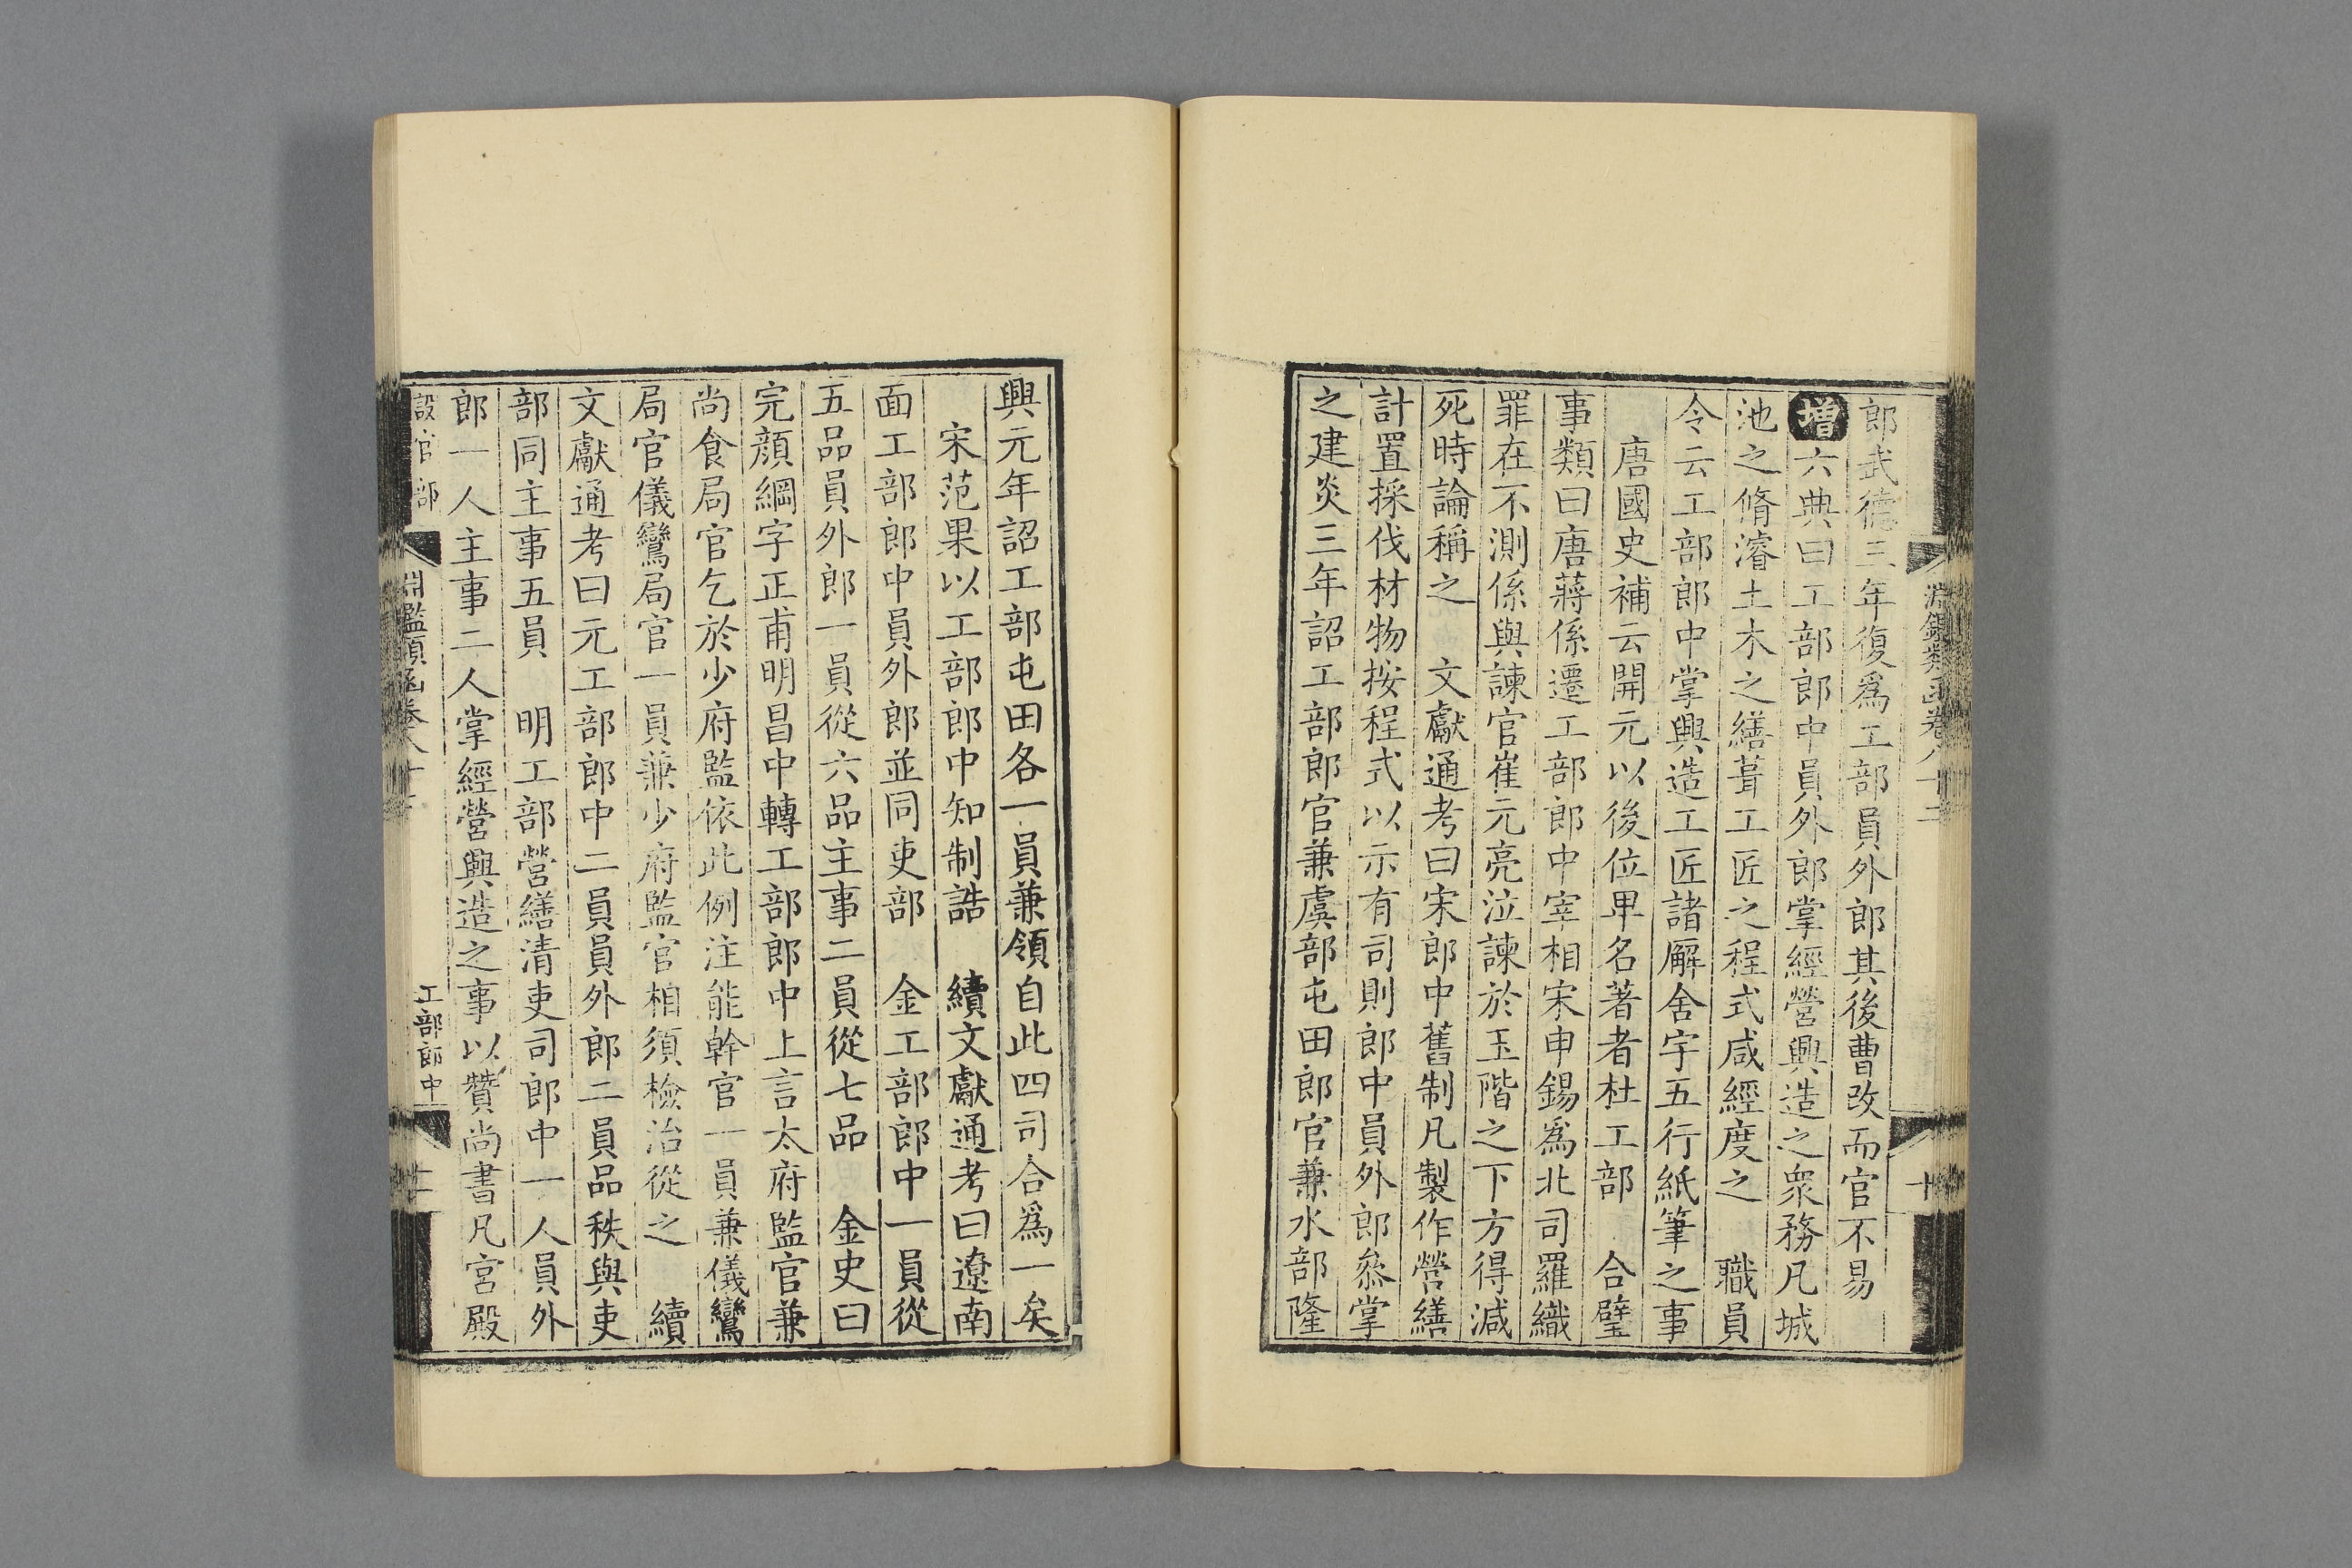 淵鑑類函卷八十二
十
郎武德三年復爲工部員外郎其後曹改而官不易
增六典曰工部郎中員外郎掌經營興造之衆務凡城
池之脩濬土木之繕葺工匠之程式咸經度之 職員
令云工部郎中掌興造工匠諸廨舍宇五行紙筆之事
唐國史補云開元以後位甲名著者杜工部 合璧
事類曰唐蔣係遷工部郎中宰相宋申錫爲北司羅織
罪在不測係與諫官崔元亮泣諫於玉階之下方得減
死時論稱之 文獻通考曰宋郎中舊制凡製作營繕
計置採伐材物按程式以示有司則郎中員外郎叅掌
之建炎三年詔工部郎官兼虞部屯田郎官兼水部隆
興元年詔工部屯田各一員兼領自此四司合爲一矣
宋范果以工部郎中知制誥 續文獻通考曰遼南
面工部郎中員外郎並同吏部 金工部郎中一員從
五品員外郎一員從六品主事二員從七品 金史曰
完顏綱字正甫明昌中轉工部郎中上言太府監官兼
尚食局官乞於少府監依此例注能幹官一員兼儀鸞
局官儀鸞局官一員兼少府監官相須檢治從之 續
文獻通考曰元工部郎中二員員外郎二員品秩與吏
部同主事五員 明工部營繕清吏司郎中一人員外
郎一人主事二人掌經營興造之事以贊尚書凡宮殿
設官部 淵鑑類函卷八十二 工部郎中